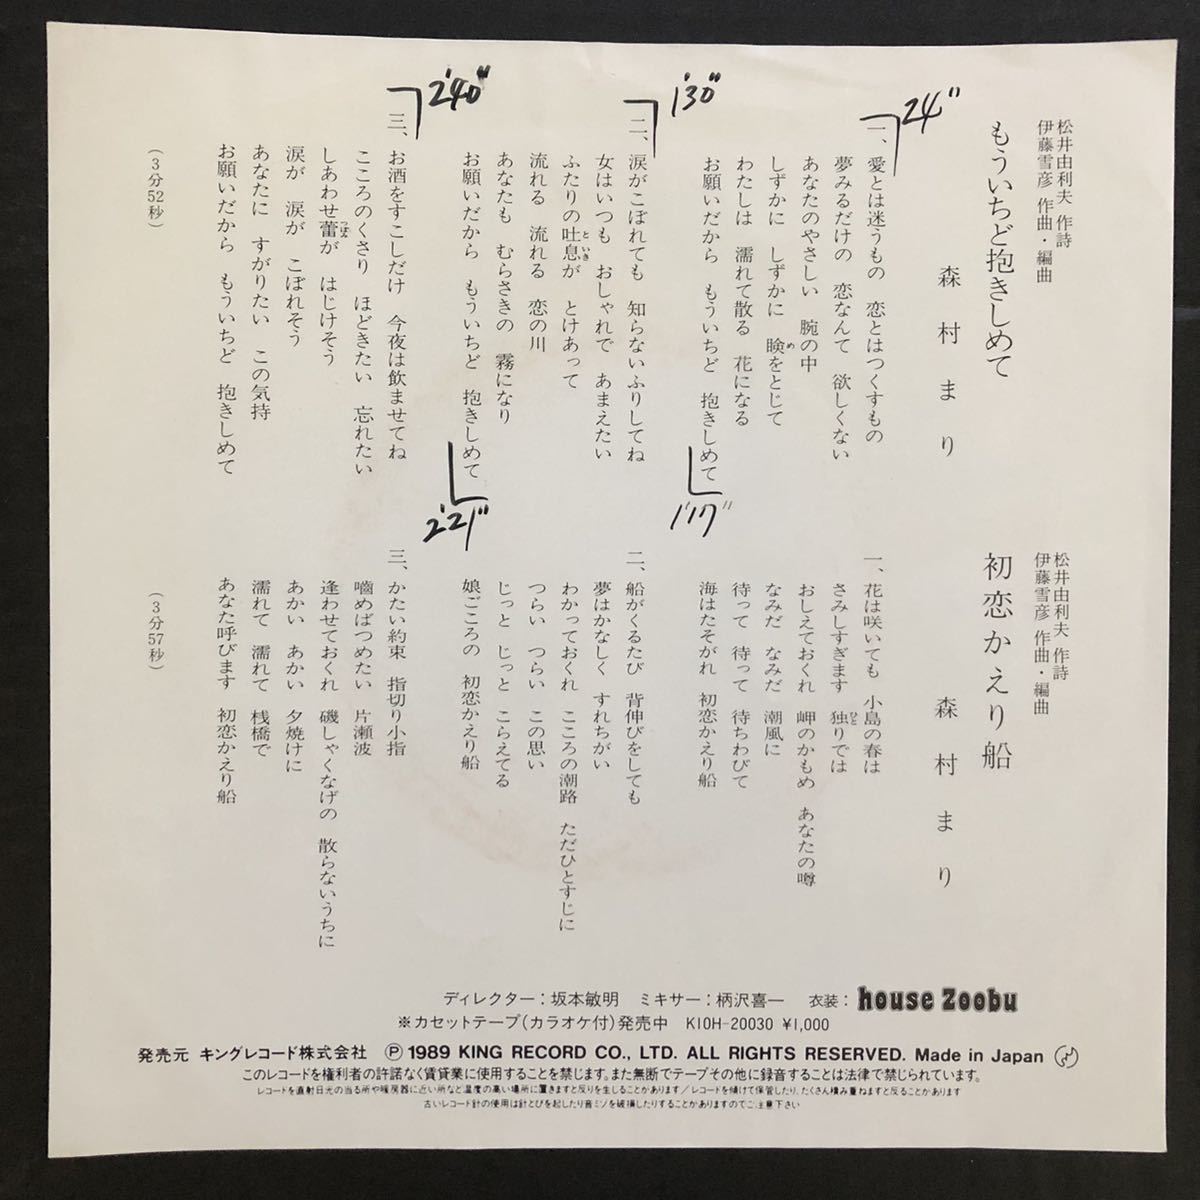 松井由利夫 作詩
伊藤雪彦 作曲・編曲
もういちど抱きしめて
森村まり
24"
一、愛とは迷うもの 恋とはつくすもの
夢みるだけの 恋なんて 欲しくない
あなたのやさしい 腕の中
しずかに しずかに 瞼をとじて
め
わたしは 濡れて散る 花になる
お願いだから もういちど 抱きしめて
1'17"
1'30"
二、涙がこぼれても 知らないふりしてね
女はいつも おしゃれで あまえたい
ふたりの吐息が とけあって
といき
流れる 流れる 恋の川
あなたも むらさきの 霧になり
お願いだから もういちど 抱きしめて
2'21"
2'40"
三、お酒をすこしだけ 今夜は飲ませてね
こころのくさり ほどきたい 忘れたい
しあわせ蕾が はじけそう
つぼみ
涙が 涙が こぼれそう
あなたに すがりたい この気持
お願いだから もういちど 抱きしめて
(3分52秒)
松井由利夫 作詩
伊藤雪彦 作曲・編曲
初恋かえり船
森村まり
一、花は咲いても 小島の春は
さみしすぎます 独りでは
ひと
おしえておくれ 岬のかもめ あなたの噂
なみだ なみだ 潮風に
待って 待って 待ちわびて
海はたそがれ 初恋かえり船
二、船がくるたび 背伸びをしても
夢はかなしく すれちがい
わかっておくれ こころの潮路 ただひとすじに
つらい つらい この思い
じっと じっと こらえてる
娘ごころの 初恋かえり船
三、かたい約束 指切り小指
嚙めばつめたい 片瀬波
逢わせておくれ 磯しゃくなげの 散らないうちに
あかい あかい 夕焼けに
濡れて 濡れて 桟橋で
あなた呼びます 初恋かえり船
(3分57秒)
ディレクター：坂本敏明 ミキサー：柄沢喜一 衣装：house Zoobu
※カセットテープ(カラオケ付)発売中 K10H-20030 ¥1,000
発売元 キングレコード株式会社 Ⓟ 1989 KING RECORD CO., LTD. ALL RIGHTS RESERVED. Made in Japan
このレコードを権利者の許諾なく賃貸業に使用することを禁じます。また無断でテープその他に録音することは法律で禁じられています。
レコードを直射日光の当る所や暖房器に近い所など温度の高い場所に置きますと反りを生じることがあります／レコードを傾けて保管したり、たくさん積み重ねますと反ることがあります
古いレコード針の使用は針とびを起したり音ミゾを破損したりすることがありますのでご注意下さい